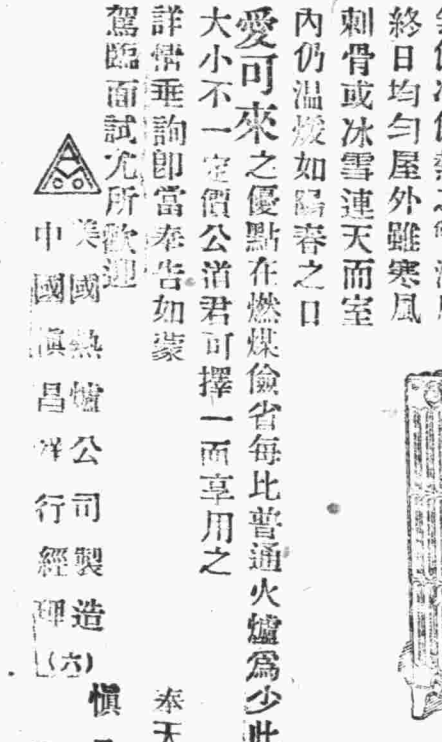 終日均勻屋外雖寒風
刺骨或冰雪連天而室
內仍溫煖如陽春之日
愛可來之優點在燃煤儉省每比普通火爐爲少此
大小不一定價公道君可擇一而享用之
詳情垂詢卽當奉告如蒙
駕臨面試尤所歡迎
美國熱爐公司製造
中國慎昌洋行經理(六)
慎
奉天